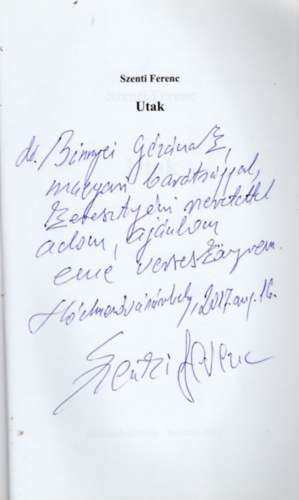 Szenti Ferenc
Utak
dr. Binnyei Gézának,
magyar barátsággal,
keresztyéni szeretettel
adom, ajánlom
eme verseskönyvem.
Hódmezővásárhely, 2017. aug. 16.
Szenti Ferenc